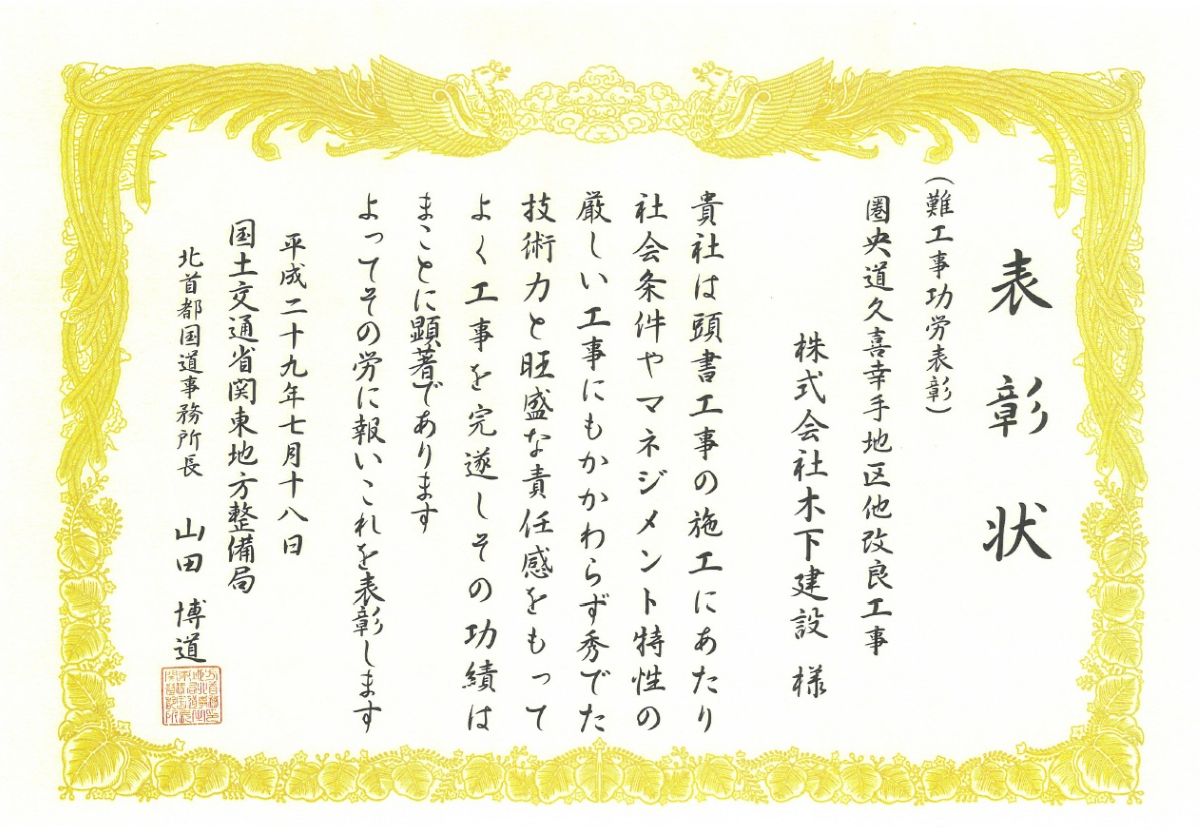 表彰状
(難工事功労表彰)
圏央道久喜幸手地区他改良工事
株式会社木下建設 様
貴社は頭書工事の施工にあたり
社会条件やマネジメント特性の
厳しい工事にもかかわらず秀でた
技術力と旺盛な責任感をもって
よく工事を完遂しその功績は
まことに顕著であります
よってその労に報いこれを表彰します
平成二十九年七月十八日
国土交通省関東地方整備局
北首都国道事務所長 山田 博道